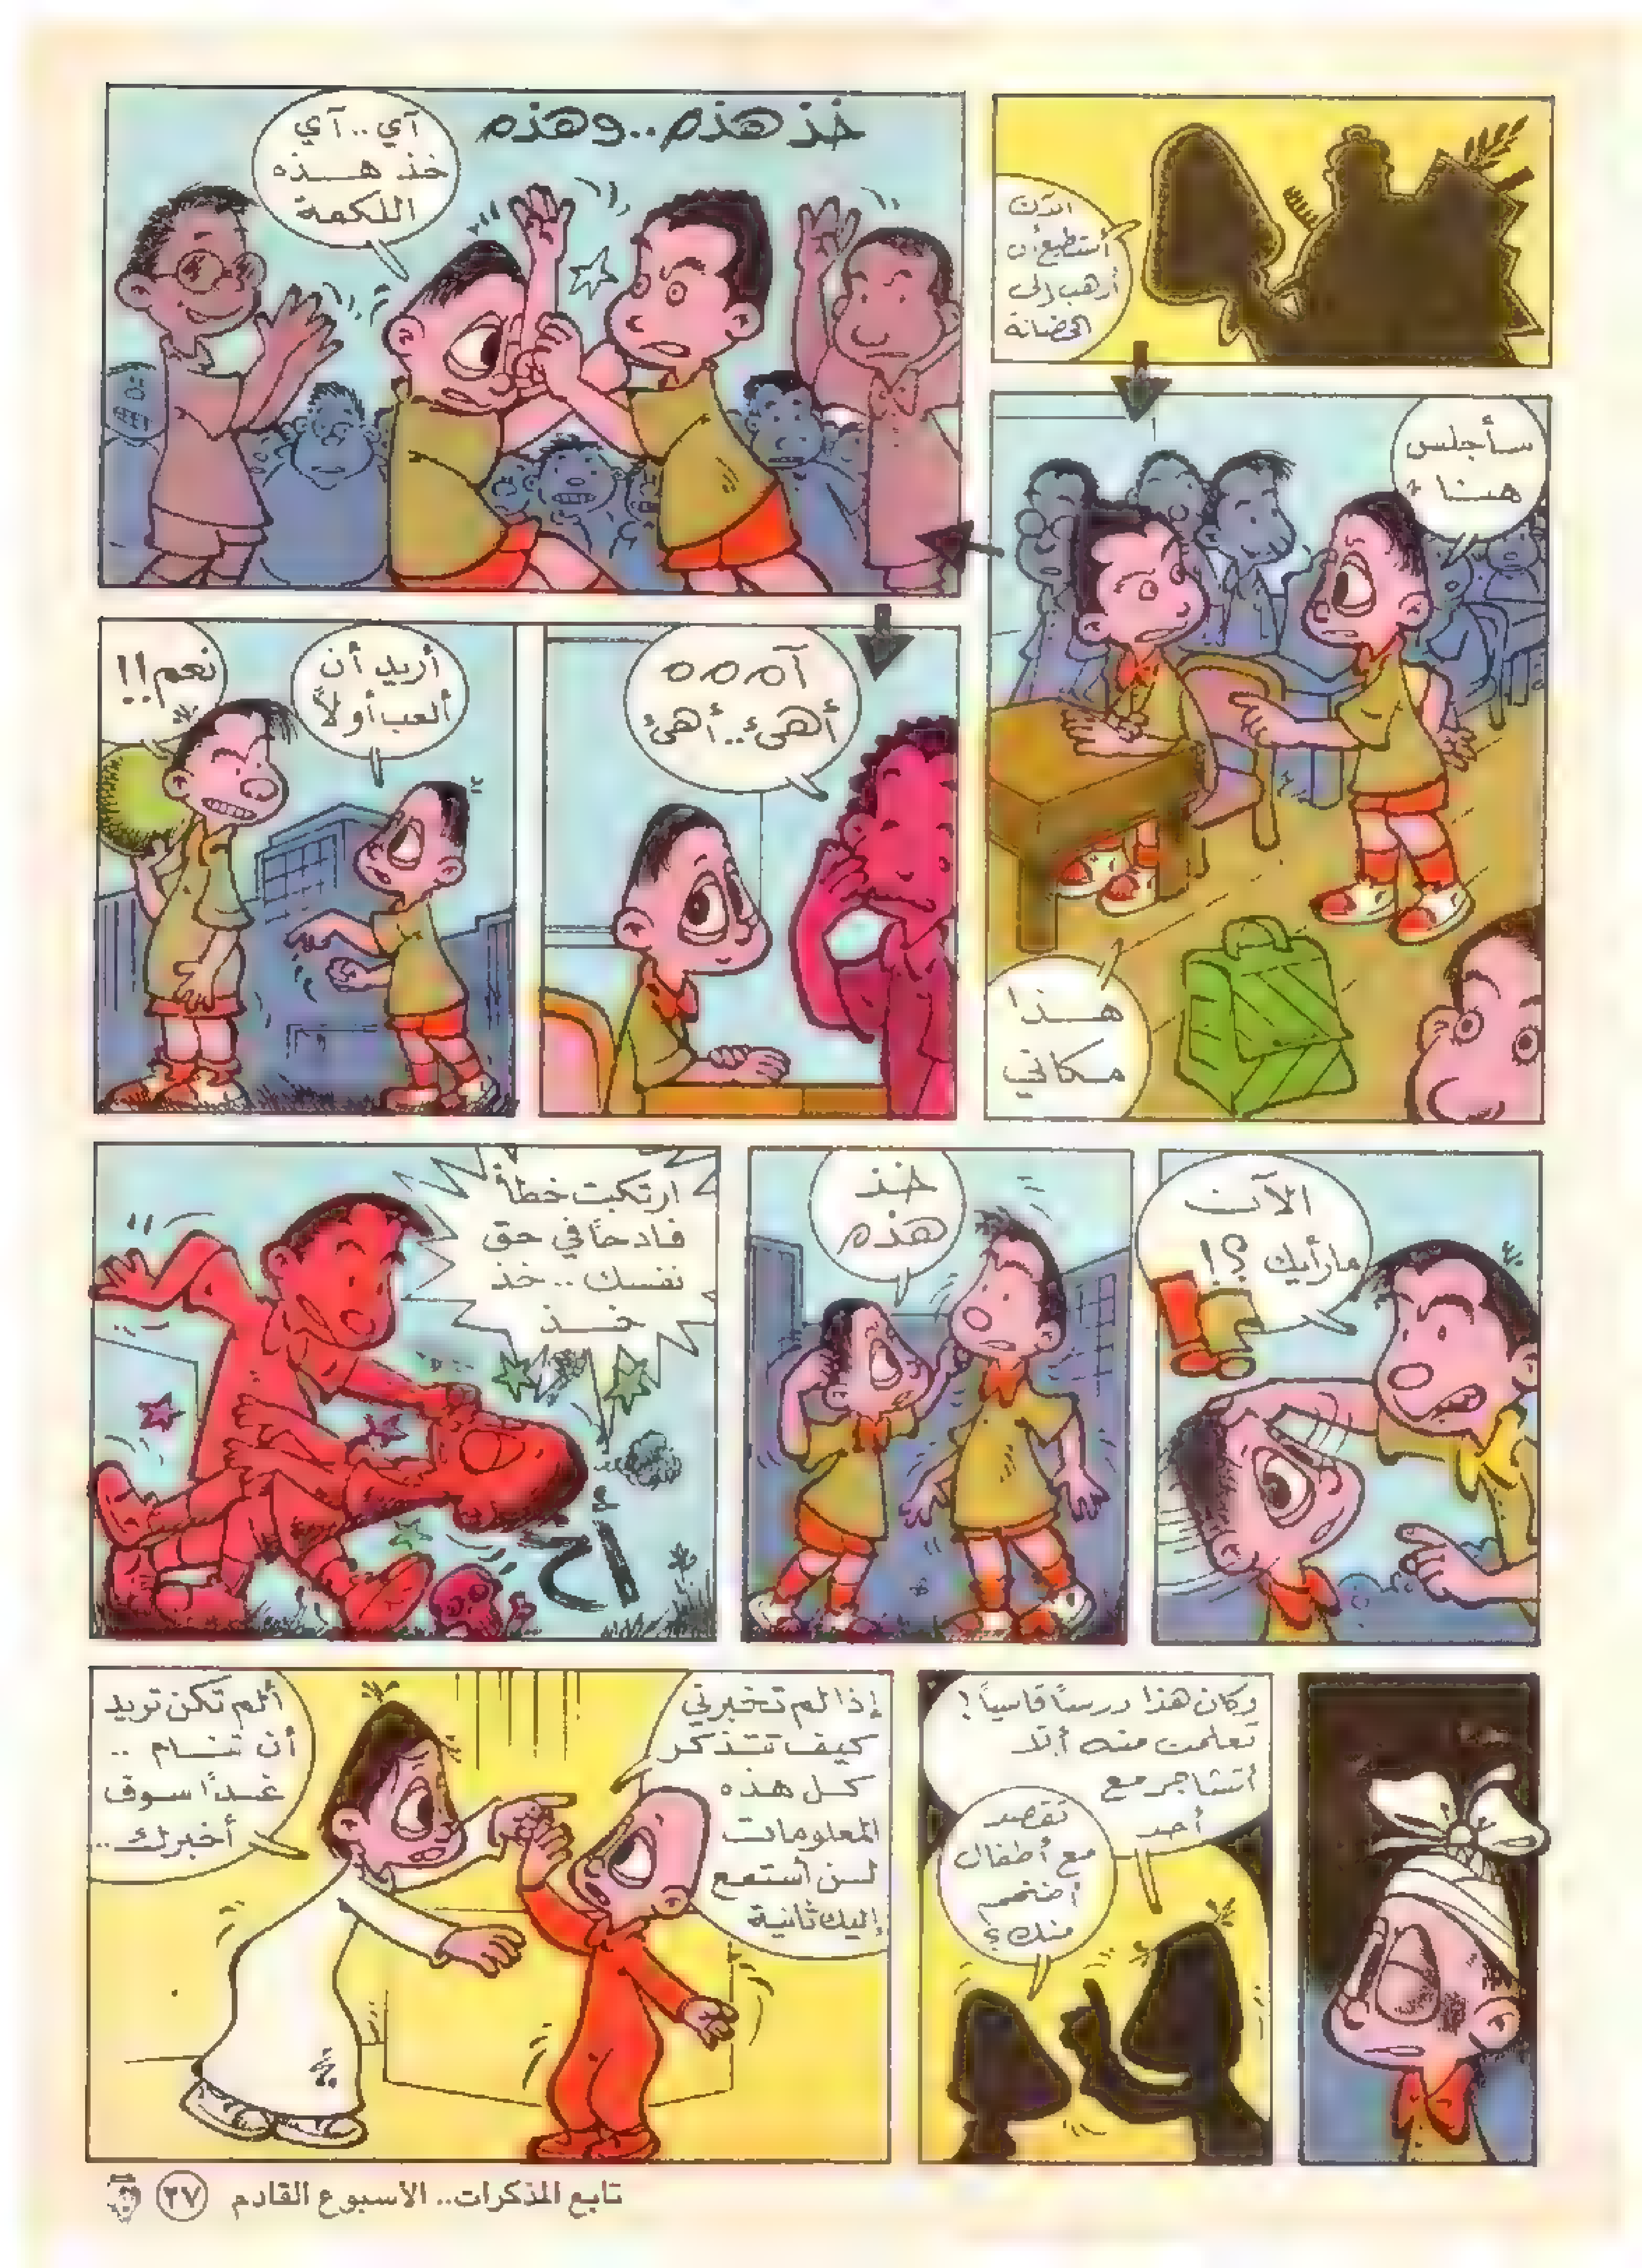 الآن
أستطيع أن
أذهب إلى
الحضانة
سأجلس
هنا
هذا
مكاني
خذ هذه..وهذه
آي..آي
خذ هـــذه
اللكمة
آه ه ه ه
أهئ..أهئ
أريد أن
ألعب أولاً
نعم!!
الآن
مارأيك؟!
خذ
هذه
ارتكبت خطأ
فادحاً في حق
نفسك..خذ
خـــذ
أح
وكان هذا درساً قاسياً!
تعلمت منه ألا
أتشاجر مع
أحد
تقصد
مع أطفال
أضخم
منك؟
إذا لم تخبرني
كيف تتذكر
كـل هذه
المعلومات
لـن أستمع
إليك ثانية
ألم تكن تريد
أن تنـام ..
غـدًا سوف
أخبرك...
تابع المذكرات.. الأسبوع القادم ٢٧